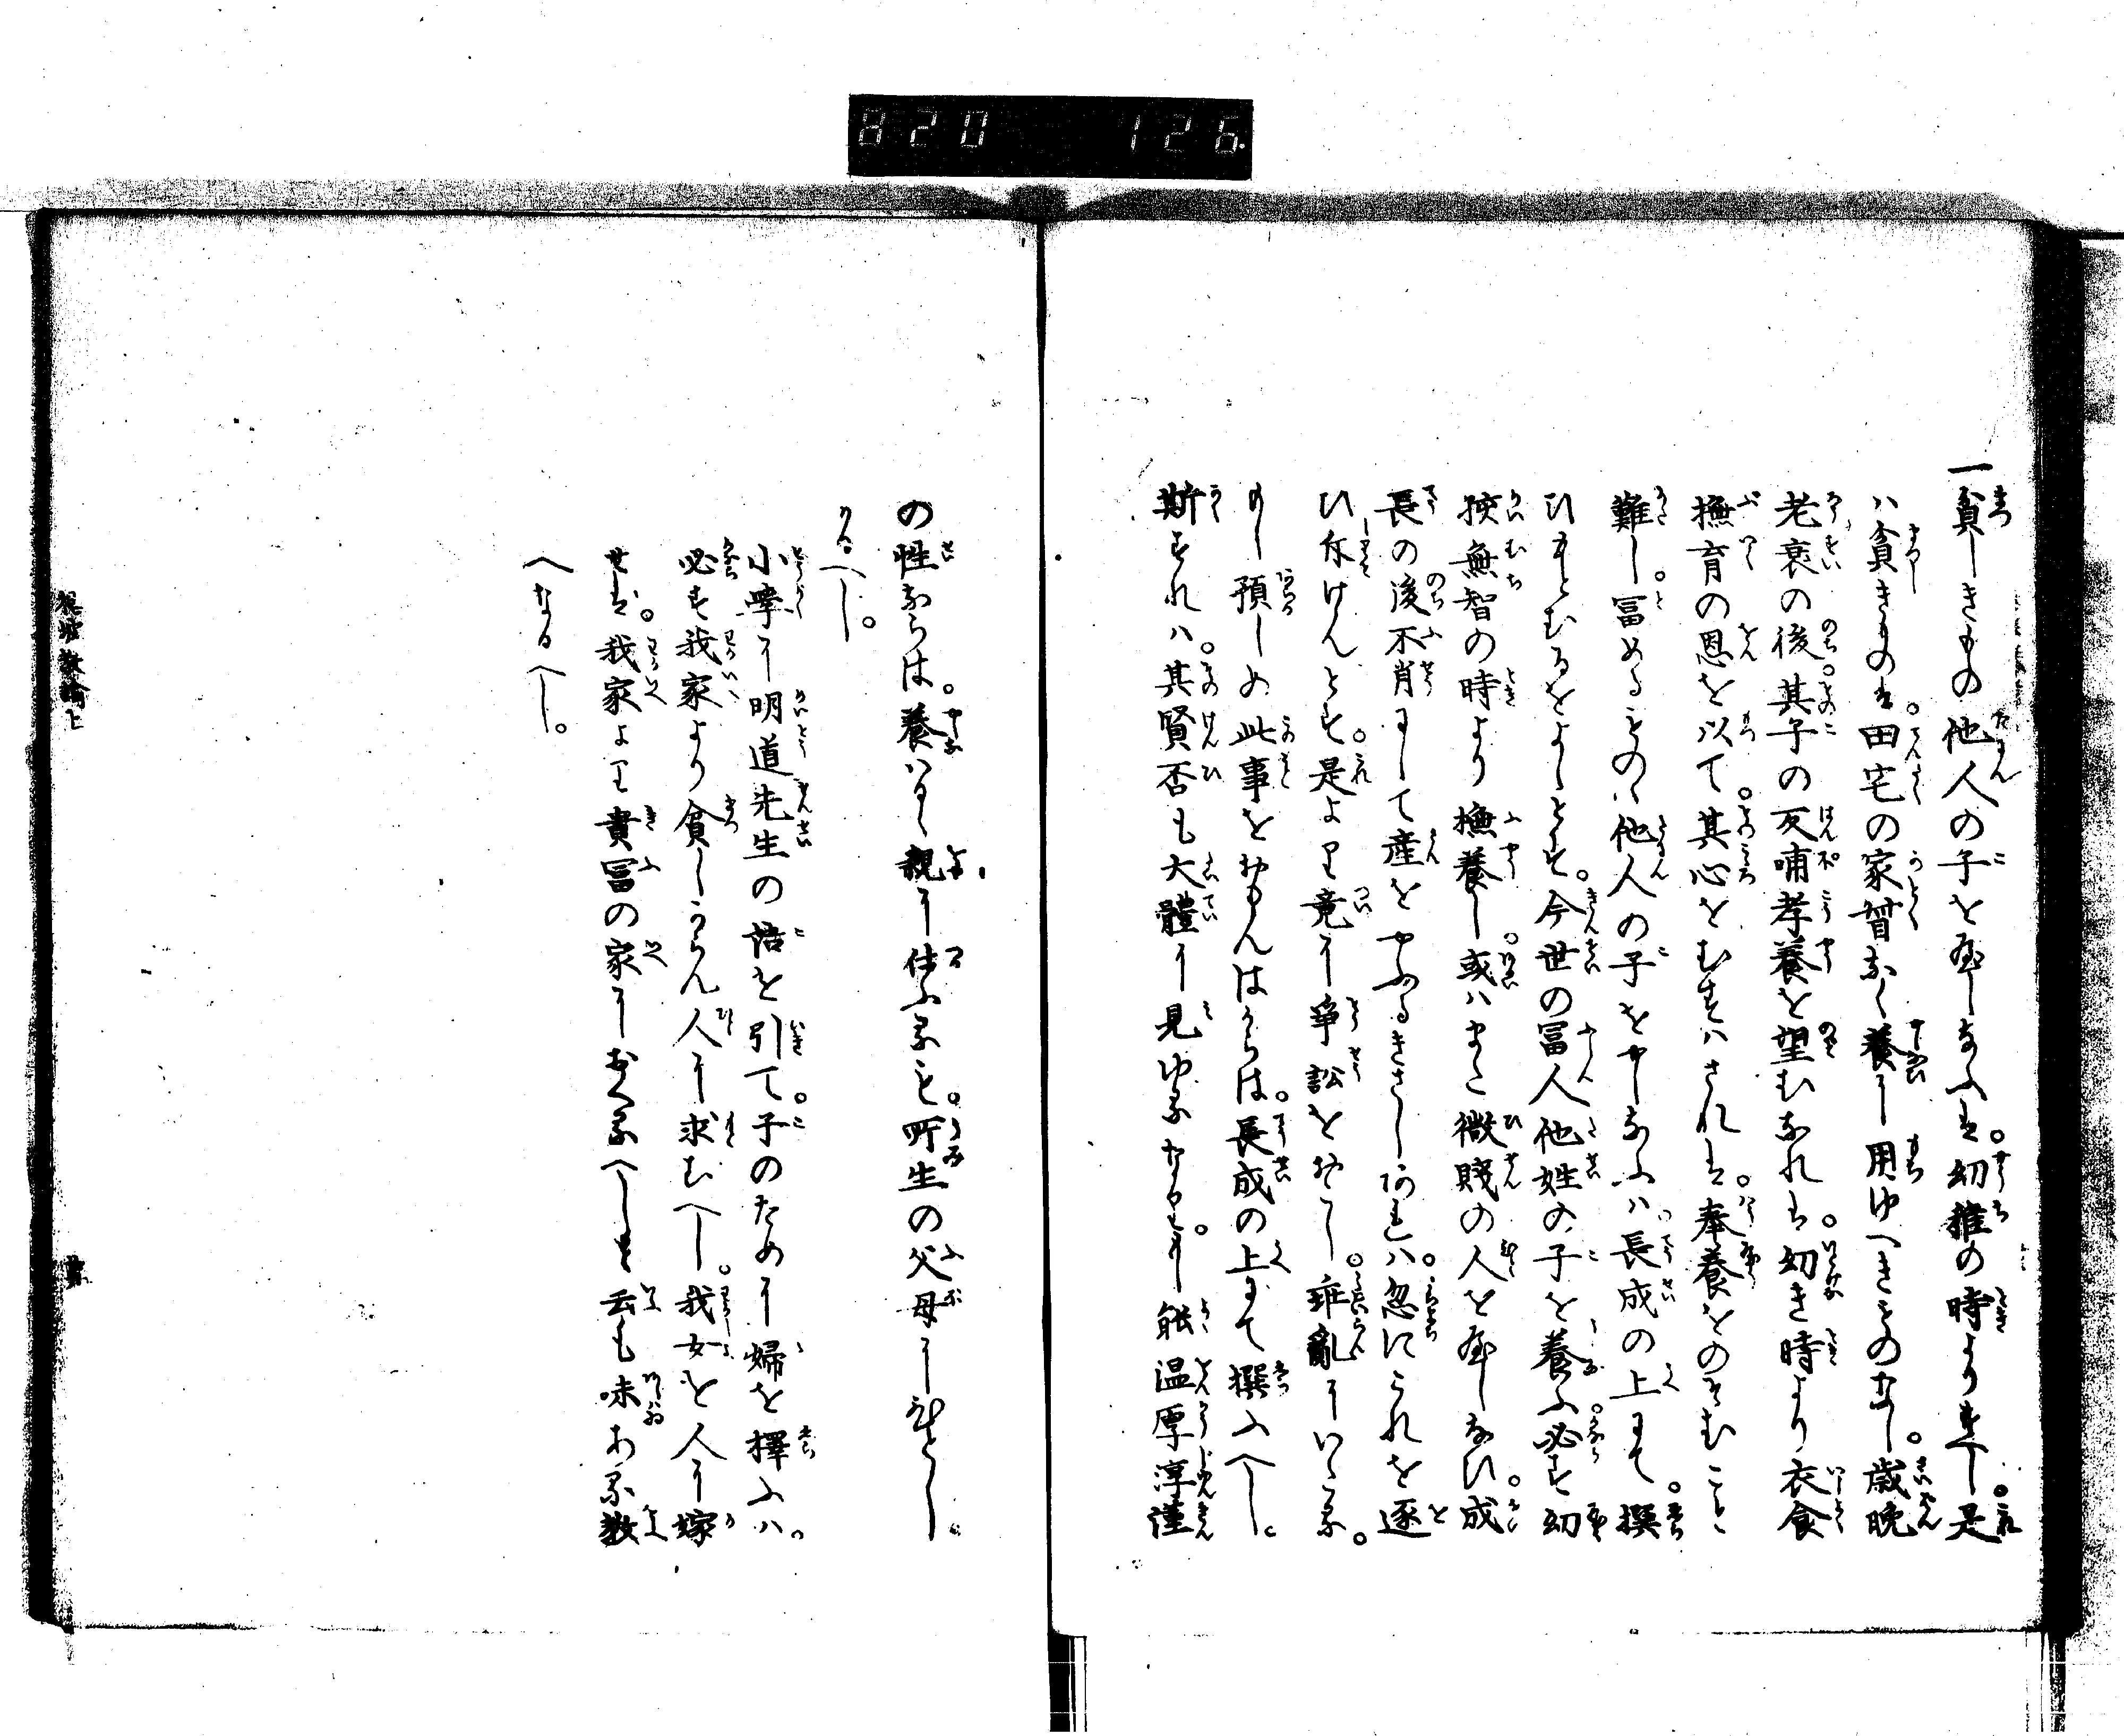 820 126
一貧しきもの他人の子を養しなふは。幼稚の時よりすへし。是
ハ貧きものは。田宅の家督なく養に用ゆへきものなし。歳晩
老衰の後。其子の反哺孝養を望むなれは。幼き時より衣食
撫育の恩を以て。其心をむすハされは。奉養をのそむこと
難し。冨めるもの他人の子をやしなふハ。長成の上にて。撰
ひもとむるをよしとす。今世の冨人他姓の子を養ふ。必す幼
孩無智の時より撫養し。或ハまた微賤の人を養しなひ。成
長の後不肖にして産をやふるきさしあれハ。忽にこれを逐
ひ斥けんとす。是より竟に爭訟をおこし。乖亂にいたる。
もし預しめ此事をおもんはからは。長成の上にて撰ふへし。
斯すれハ。其賢否も大體に見ゆるなり。能温厚淳謹
の性ならは。養はるゝ親に仕ふるも。所生の父母にひとし
かるへし。
小學に明道先生の語を引て。子のために婦を擇ふハ。
必す我家より貧しからん人に求むへし。我女を人に嫁
せは。我家より貴冨の家におくるへしと云も味ある教
へなるへし。